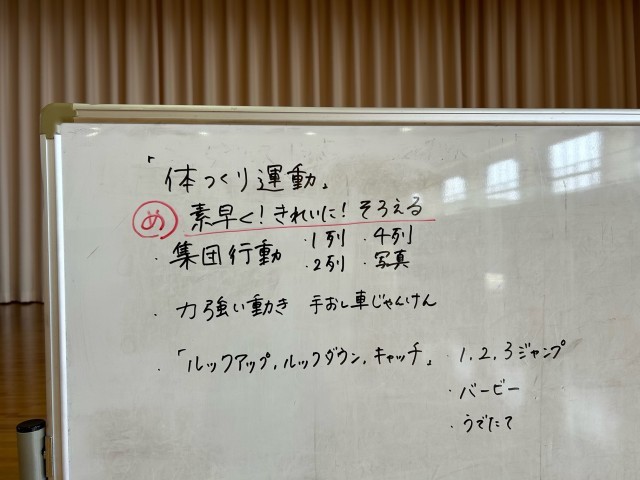 「体つくり運動」
め 素早く！きれいに！そろえる
・集団行動 ・1列 ・4列
・2列 ・写真
・力強い動き 手おし車じゃんけん
・「ルックアップ，ルックダウン，キャッチ」 ・1，2，3ジャンプ
・バービー
・うでたて